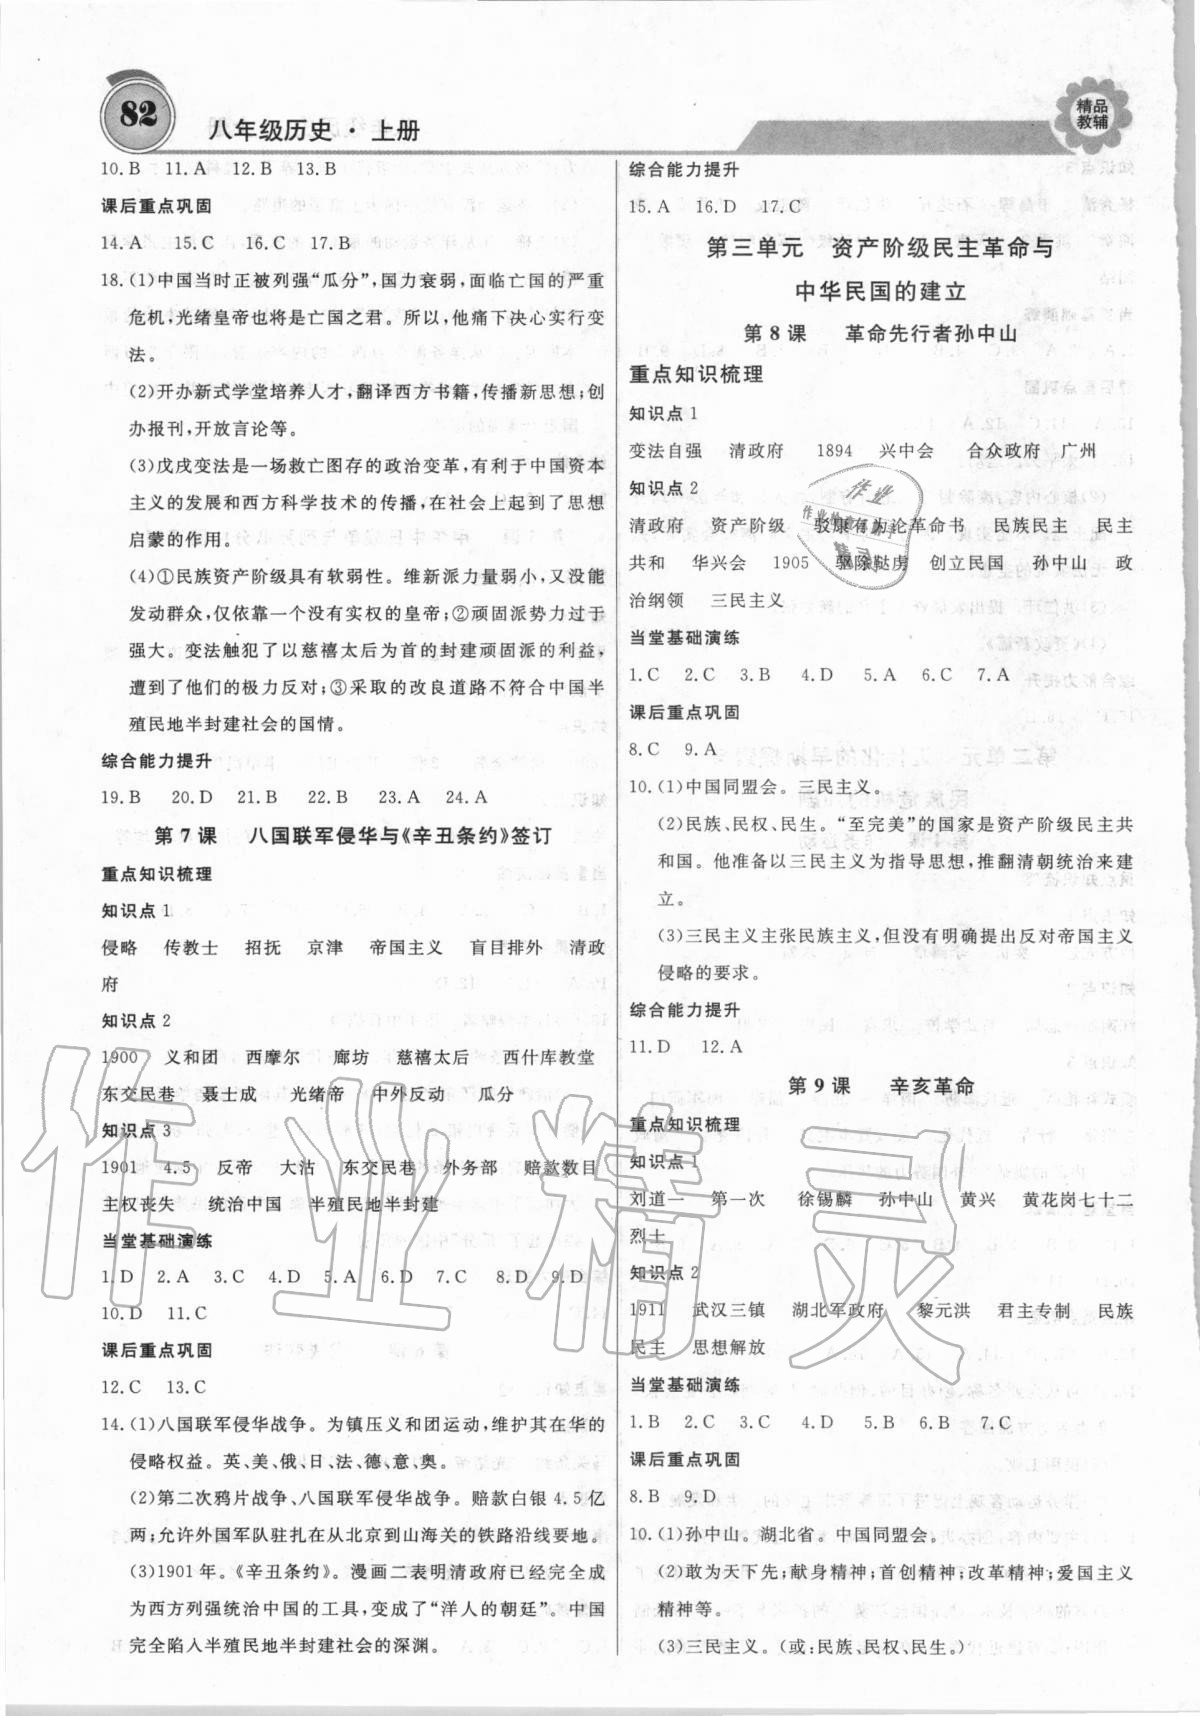 82
八年级历史 · 上册
精品
教辅
10.B 11.A 12.B 13.B
课后重点巩固
14.A 15.C 16.C 17.B
18.(1)中国当时正被列强“瓜分”,国力衰弱,面临亡国的严重
危机,光绪皇帝也将是亡国之君。所以,他痛下决心实行变
法。
(2)开办新式学堂培养人才,翻译西方书籍,传播新思想;创
办报刊,开放言论等。
(3)戊戌变法是一场救亡图存的政治变革,有利于中国资本
主义的发展和西方科学技术的传播,在社会上起到了思想
启蒙的作用。
(4)①民族资产阶级具有软弱性。维新派力量弱小,又没能
发动群众,仅依靠一个没有实权的皇帝;②顽固派势力过于
强大。变法触犯了以慈禧太后为首的封建顽固派的利益,
遭到了他们的极力反对;③采取的改良道路不符合中国半
殖民地半封建社会的国情。
综合能力提升
19.B 20.D 21.B 22.B 23.A 24.A
第 7 课 八国联军侵华与《辛丑条约》签订
重点知识梳理
知识点 1
侵略 传教士 招抚 京津 帝国主义 盲目排外 清政
府
知识点 2
1900 义和团 西摩尔 廊坊 慈禧太后 西什库教堂
东交民巷 聂士成 光绪帝 中外反动 瓜分
知识点 3
1901 4.5 反帝 大沽 东交民巷 外务部 赔款数目
主权丧失 统治中国 半殖民地半封建
当堂基础演练
1.D 2.A 3.C 4.D 5.A 6.D 7.C 8.D 9.D
10.D 11.C
课后重点巩固
12.C 13.C
14.(1)八国联军侵华战争。为镇压义和团运动,维护其在华的
侵略权益。英、美、俄、日、法、德、意、奥。
(2)第二次鸦片战争、八国联军侵华战争。赔款白银 4.5 亿
两;允许外国军队驻扎在从北京到山海关的铁路沿线要地。
(3)1901 年。《辛丑条约》。漫画二表明清政府已经完全成
为西方列强统治中国的工具,变成了“洋人的朝廷”。中国
完全陷入半殖民地半封建社会的深渊。
综合能力提升
15.A 16.D 17.C
第三单元 资产阶级民主革命与
中华民国的建立
第 8 课 革命先行者孙中山
重点知识梳理
知识点 1
变法自强 清政府 1894 兴中会 合众政府 广州
知识点 2
清政府 资产阶级 驳康有为论革命书 民族民主 民主
共和 华兴会 1905 驱除鞑虏 创立民国 孙中山 政
治纲领 三民主义
当堂基础演练
1.C 2.C 3.B 4.D 5.A 6.C 7.A
课后重点巩固
8.C 9.A
10.(1)中国同盟会。三民主义。
(2)民族、民权、民生。“至完美”的国家是资产阶级民主共
和国。他准备以三民主义为指导思想,推翻清朝统治来建
立。
(3)三民主义主张民族主义,但没有明确提出反对帝国主义
侵略的要求。
综合能力提升
11.D 12.A
第 9 课 辛亥革命
重点知识梳理
知识点 1
刘道一 第一次 徐锡麟 孙中山 黄兴 黄花岗七十二
烈士
知识点 2
1911 武汉三镇 湖北军政府 黎元洪 君主专制 民族
民主 思想解放
当堂基础演练
1.B 2.C 3.C 4.D 5.B 6.B 7.C
课后重点巩固
8.B 9.D
10.(1)孙中山。湖北省。中国同盟会。
(2)敢为天下先;献身精神;首创精神;改革精神;爱国主义
精神等。
(3)三民主义。(或:民族、民权、民生。)
作业精灵